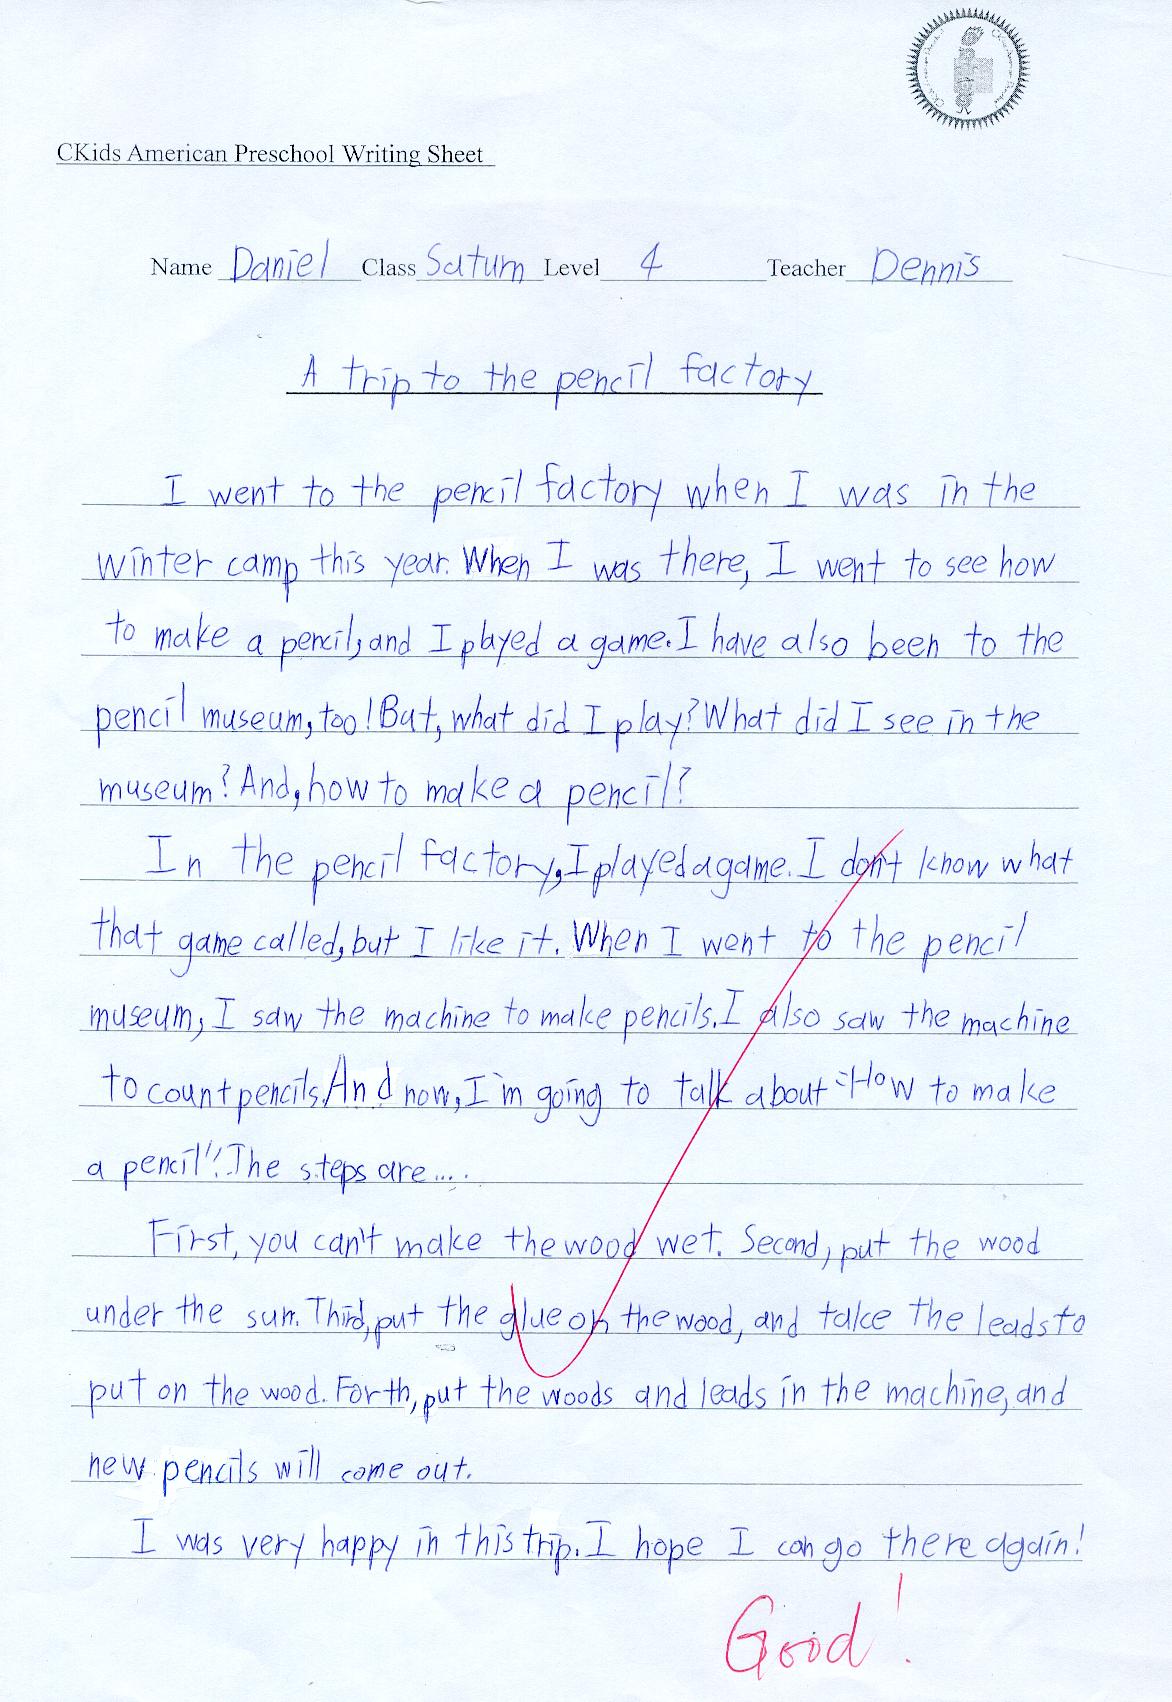 CKids American Preschool Writing Sheet
Name Daniel Class Saturn Level 4 Teacher Dennis
A trip to the pencil factory
I went to the pencil factory when I was in the
winter camp this year. When I was there, I went to see how
to make a pencil, and I played a game. I have also been to the
pencil museum, too! But, what did I play? What did I see in the
museum? And, how to make a pencil?
In the pencil factory, I played a game. I don't know what
that game called, but I like it. When I went to the pencil
museum, I saw the machine to make pencils. I also saw the machine
to count pencils. And now, I'm going to talk about "How to make
a pencil". The steps are....
First, you can't make the wood wet. Second, put the wood
under the sun. Third, put the glue on the wood, and take the leads to
put on the wood. Forth, put the woods and leads in the machine, and
new pencils will come out.
I was very happy in this trip. I hope I can go there again!
Good!